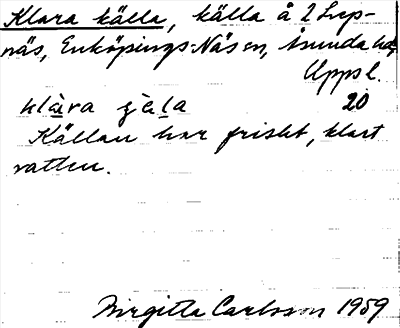 Klara källa, källa å 2 Lup-
näs, Enköpings-Näs sn, Åsunda hd,
Uppsl.
klàra çæ̀la 20
Källan har friskt, klart
vatten.
Birgitta Carlsson 1959